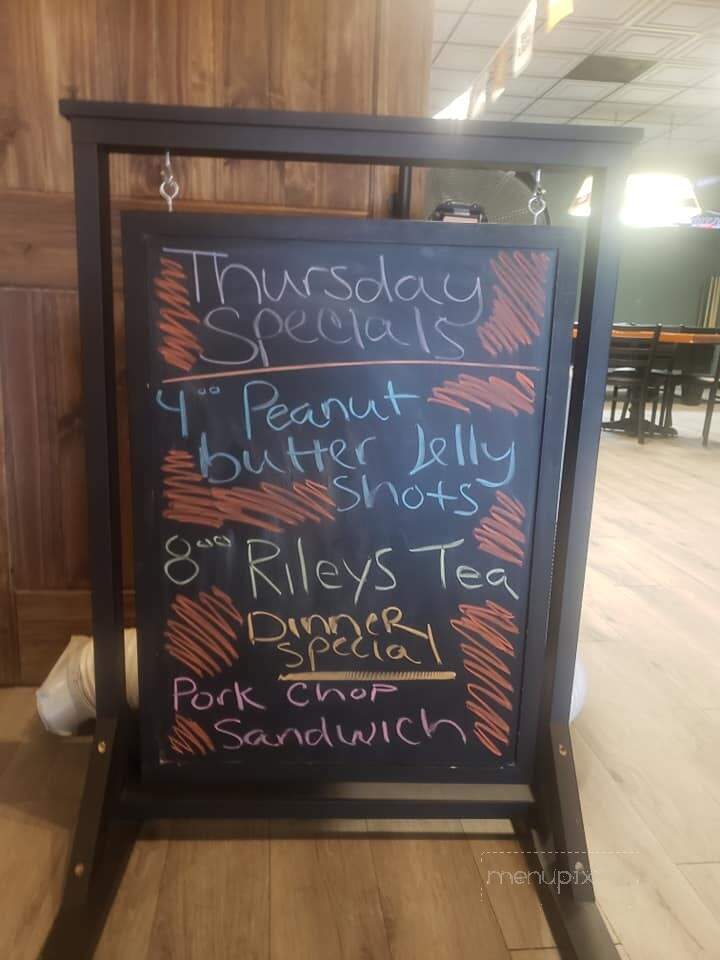 Thursday
Specials
4⁰⁰ Peanut
butter Jelly
Shots
8⁰⁰ Rileys Tea
Dinner
Special
Pork Chop
Sandwich
menupix